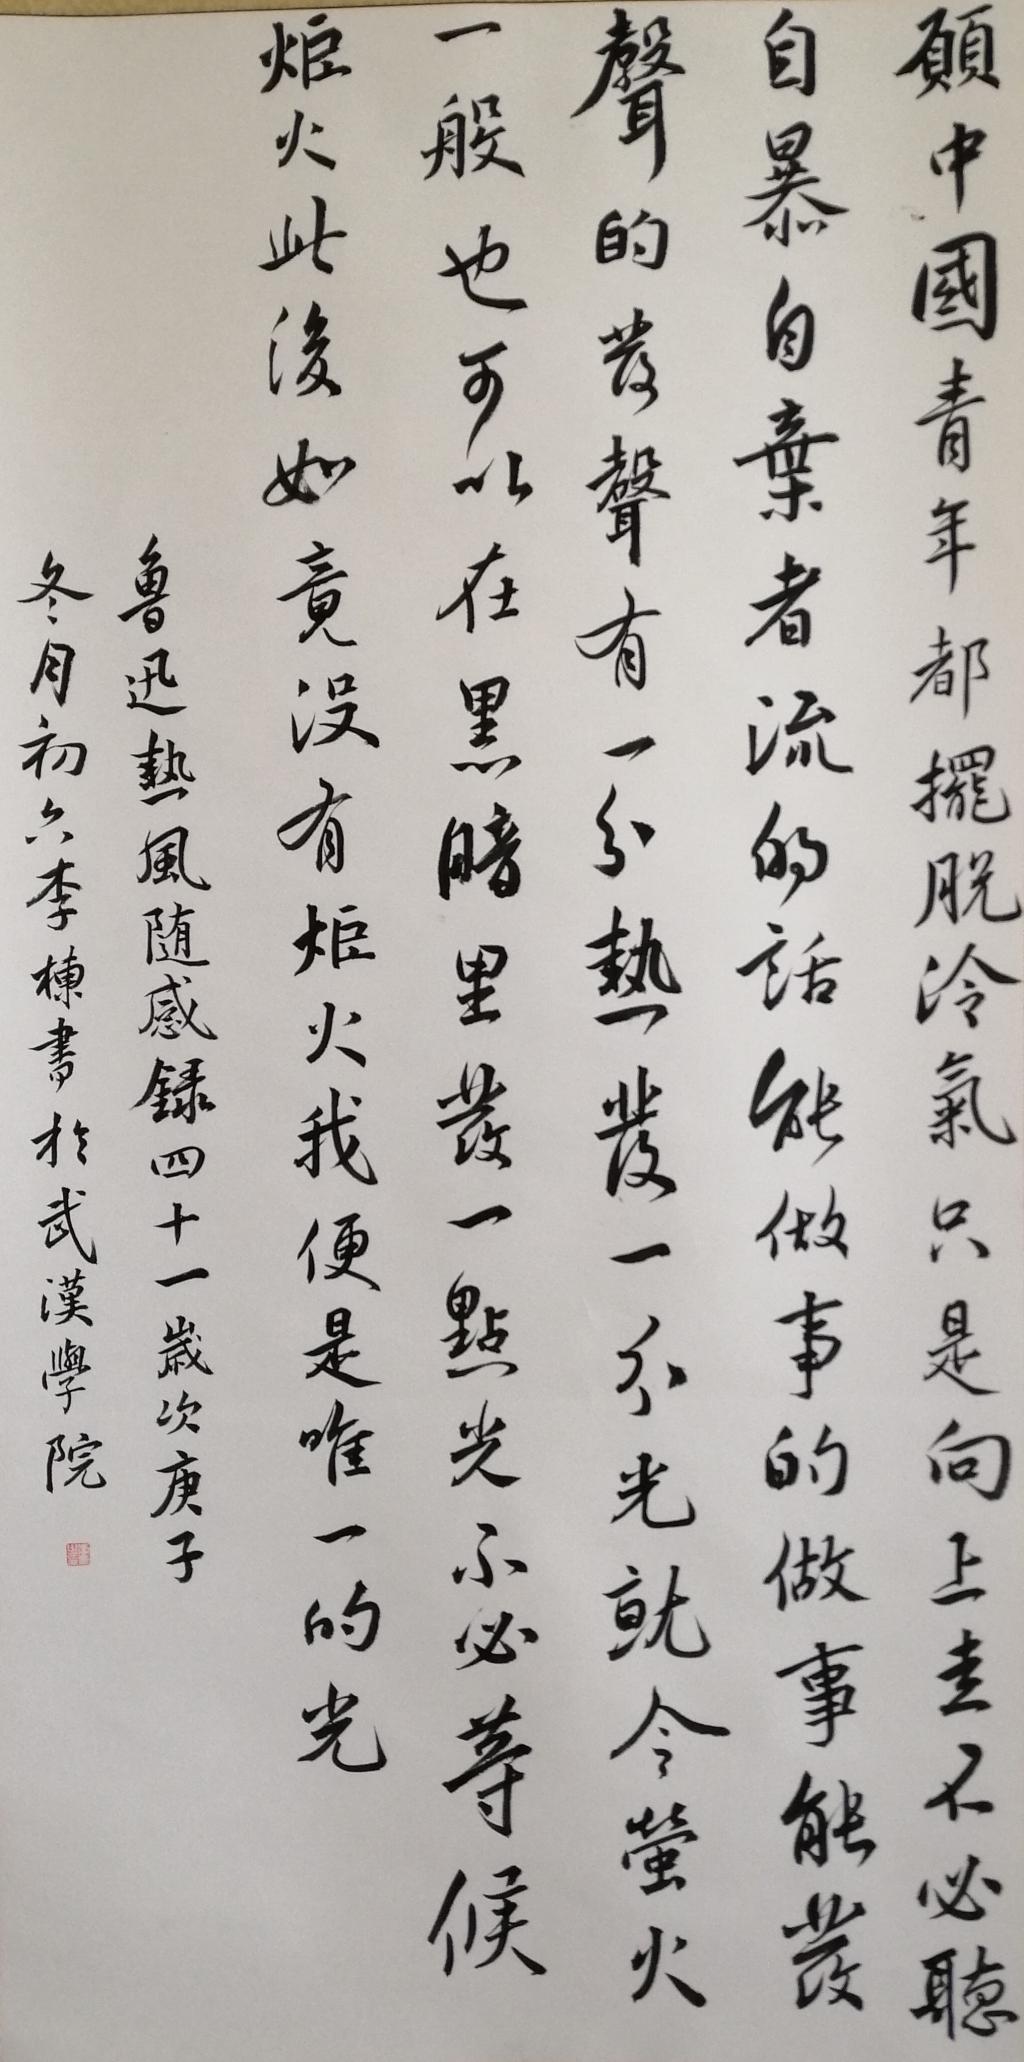 願中國青年都擺脫冷氣只是向上走不必聽
自暴自棄者流的話能做事的做事能發
聲的發聲有一分熱發一分光就令螢火
一般也可以在黑暗里發一點光不必等候
炬火此後如竟没有炬火我便是唯一的光
魯迅熱風随感録四十一歲次庚子
冬月初六李棟書於武漢學院